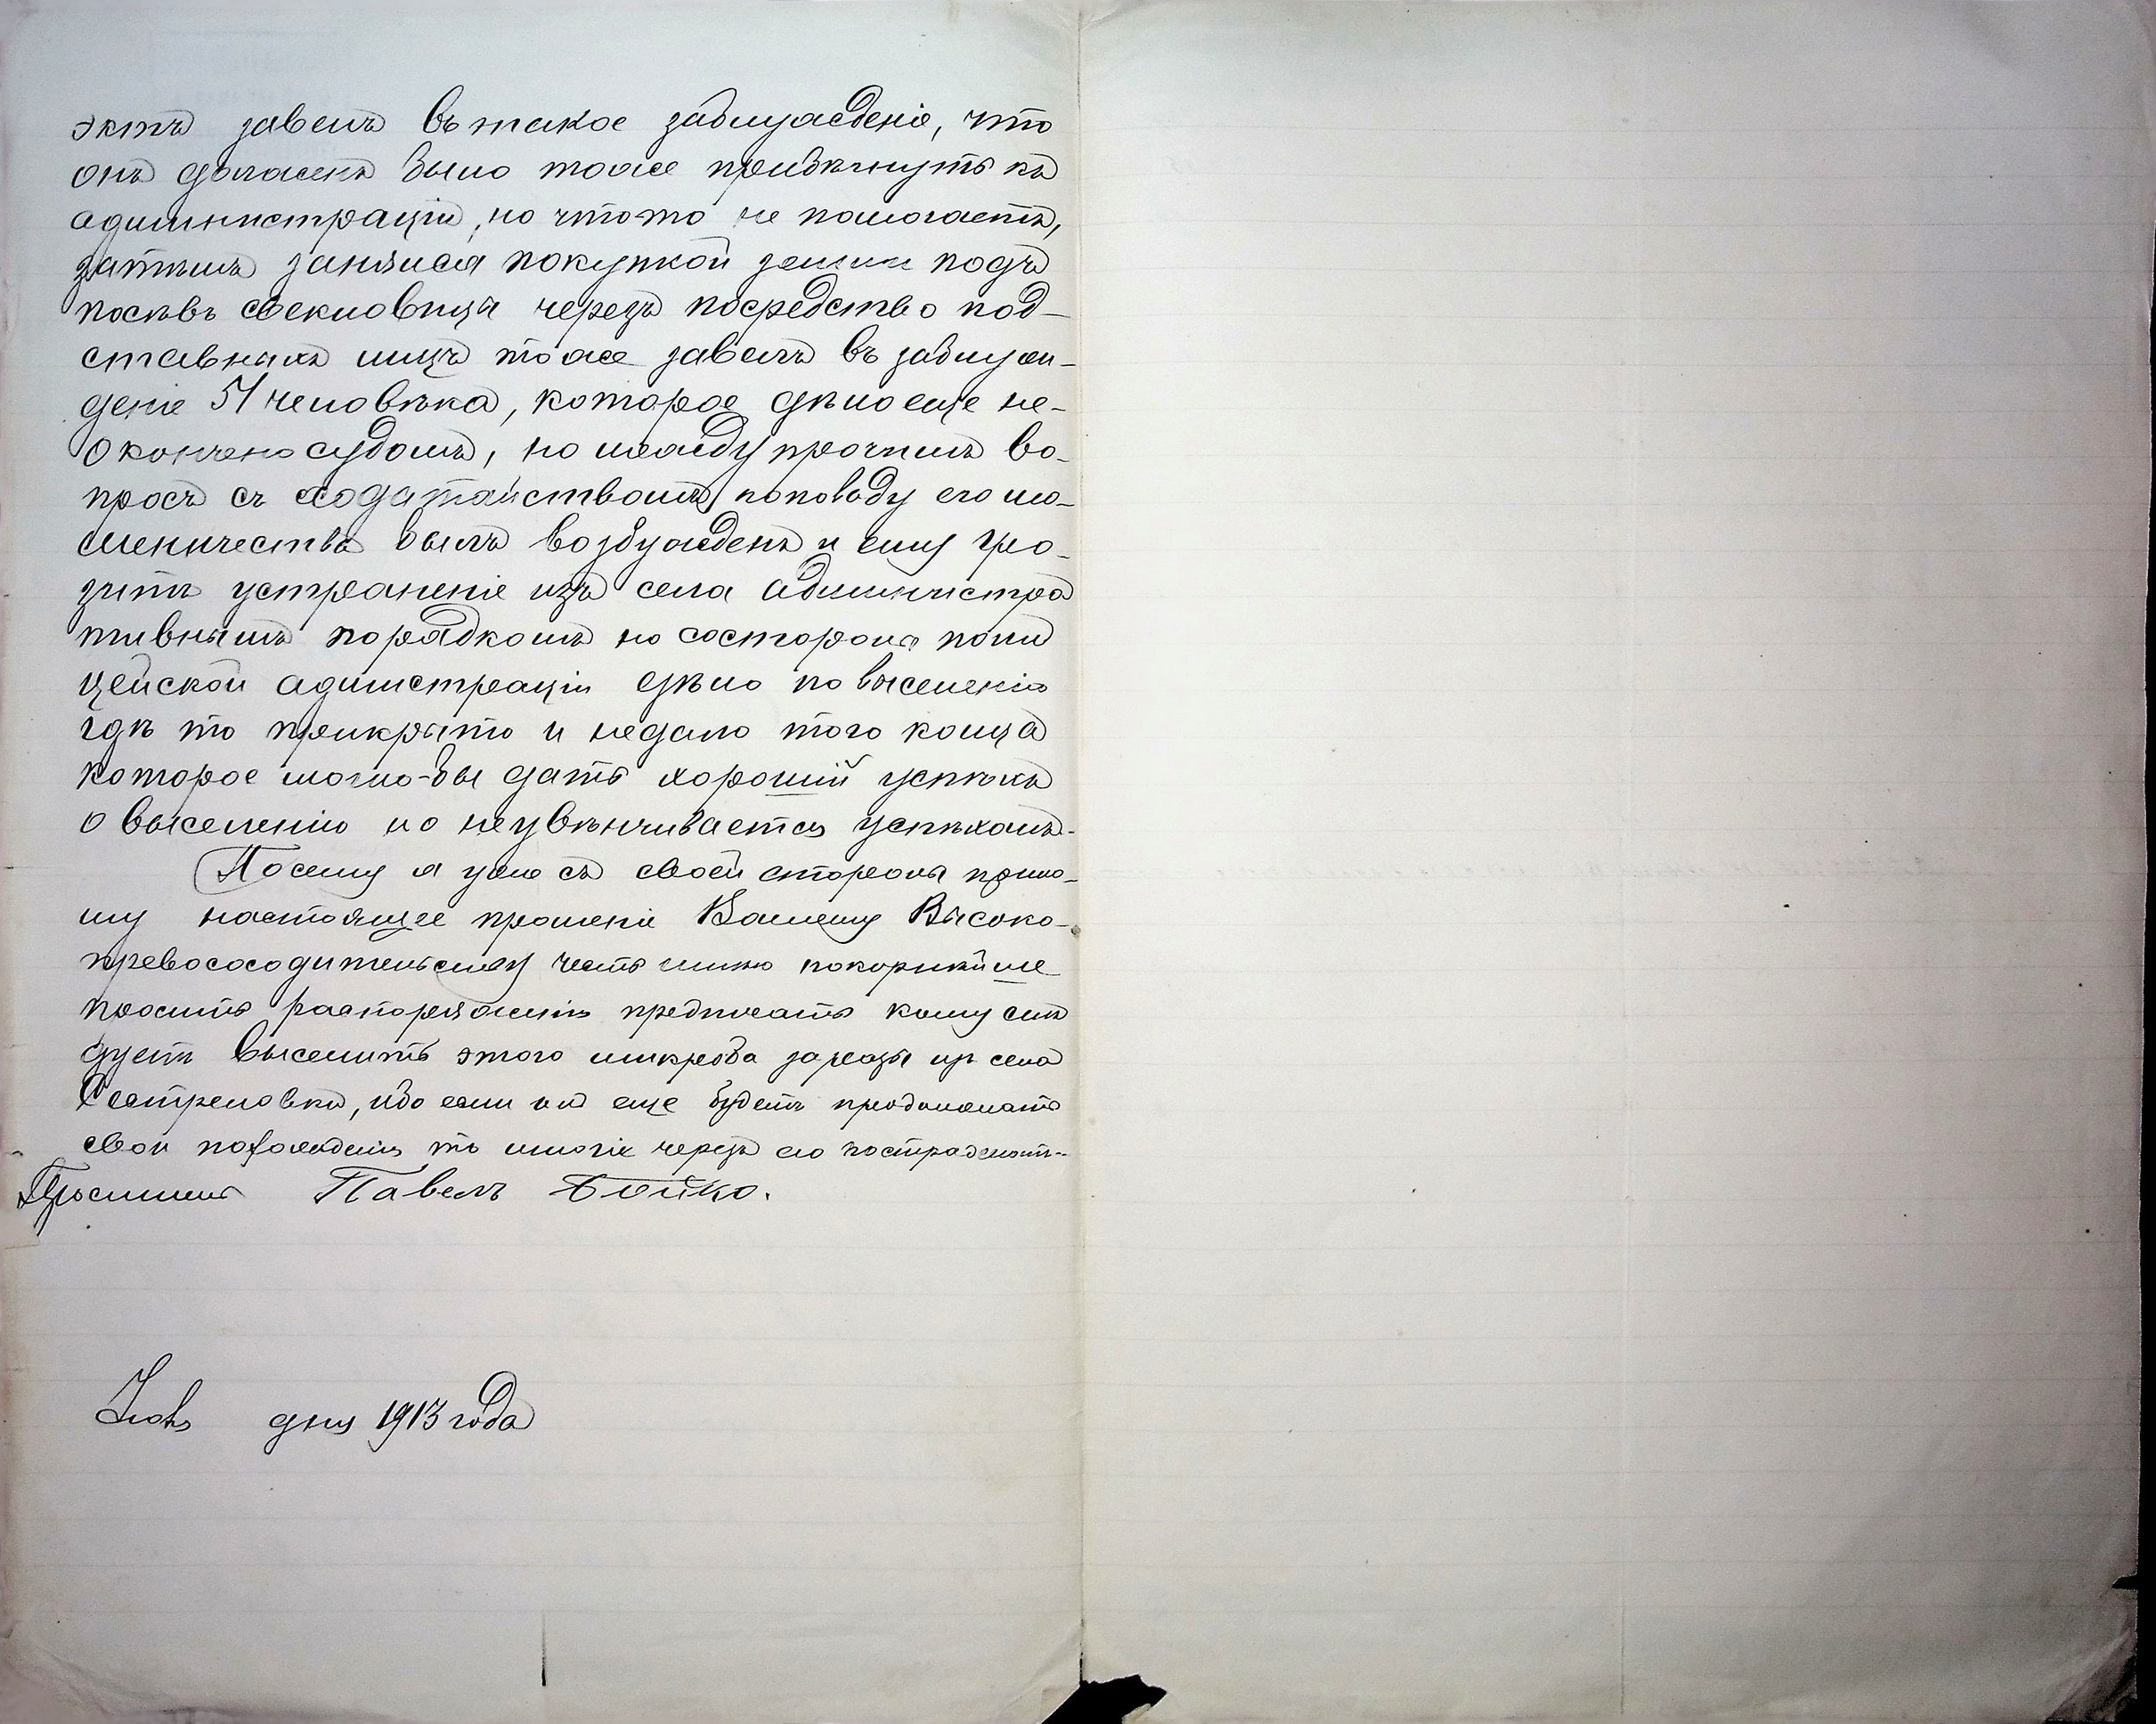 эктъ завелъ въ такое заблужденіе, что
онъ долженъ было тоже прибѣгнуть къ
администраціи, но что то не помогаетъ,
затѣмъ занялся покупкой земли подъ
посѣвъ свекловицы черезъ посредство под-
ставныхъ лицъ тоже завелъ въ заблуж-
деніе 51 человѣка, которое дѣло еще не-
окончено судомъ, но между прочимъ во-
просъ съ ходатайствомъ поповоду его мо-
шеничества былъ возбужденъ и ему гро-
зитъ устраненіе изъ села администра
тивнымъ порядкомъ но состороны поли
цейской адмистраціи дѣло по выселенію
гдѣ то прикрыто и недало того конца
которое могло-бы дать хорошій успѣхъ
о выселенію но неувѣнчивается успѣхомъ.
Посему я уже съ своей стороны прино-
шу настоящее прошеніе Вашему Высоко-
превосходительству честь имѣю покорнѣйше
просить распоряженія предписать кому слѣ
дуетъ выселить этого микроба заразы изъ села
Сестреновки, ибо если онъ еще будетъ продолжать
свои похожденія то многіе черезъ его пострадаютъ.
Проситель Павелъ Бойко.
дня 1913 года